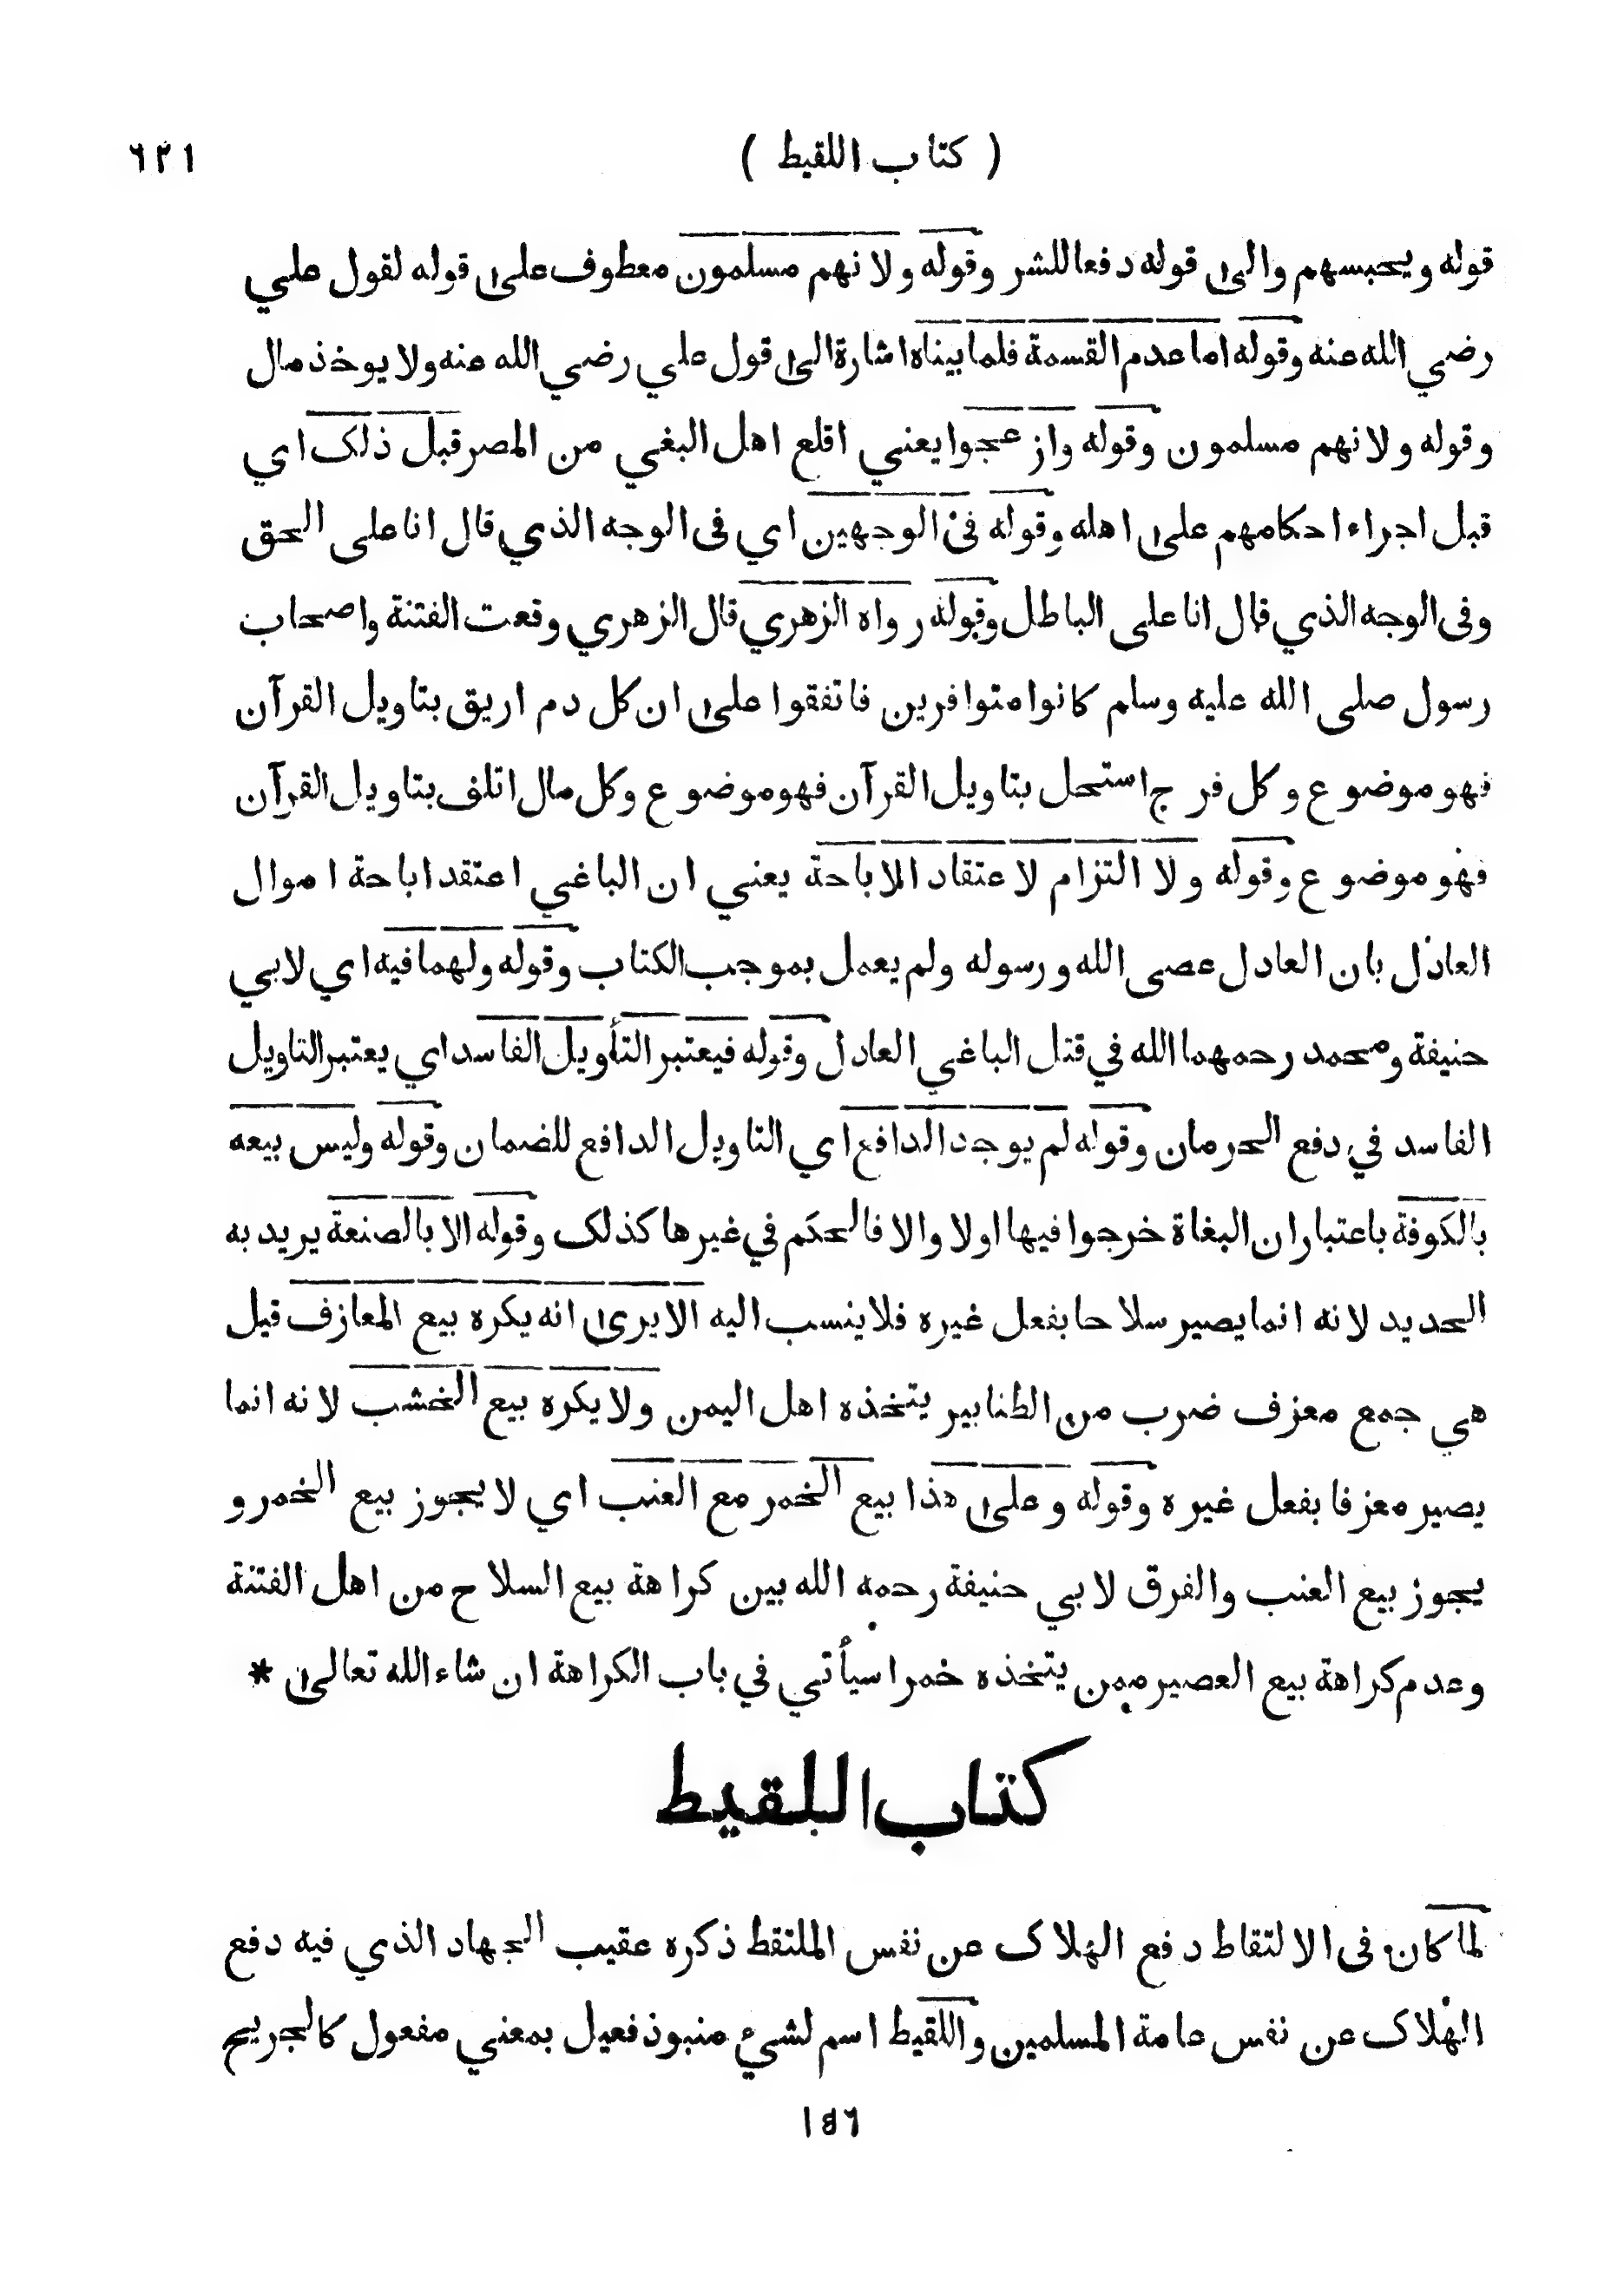 ( كتاب اللقيط ) ٦٢١
قوله ويحبسهم والى قوله دفعا للشر وقوله ولانهم مسلمون معطوف على قوله لقول علي
رضي الله عنه وقوله اما عدم القسمة فلما بيناه اشارة الى قول علي رضي الله عنه ولا يوخذ مال
وقوله ولانهم مسلمون وقوله وازعجوا يعني اقلع اهل البغي من المصر قبل ذلك اي
قبل اجراء احكامهم على اهله وقوله في الوجهين اي في الوجه الذي قال انا على الحق
وفي الوجه الذي قال انا على الباطل وقوله رواه الزهري قال الزهري وقعت الفتنة واصحاب
رسول صلى الله عليه وسلم كانوا متوافرين فاتفقوا على ان كل دم اريق بتاويل القرآن
فهو موضوع وكل فرج استحل بتاويل القرآن فهو موضوع وكل مال اتلف بتاويل القرآن
فهو موضوع وقوله ولا التزام لاعتقاد الاباحة يعني ان الباغي اعتقد اباحة اموال
العادل بان العادل عصى الله ورسوله ولم يعمل بموجب الكتاب وقوله ولهما فيه اي لابي
حنيفة ومحمد رحمهما الله في قتل الباغي العادل وقوله فيعتبر التأويل الفاسد اي يعتبر التاويل
الفاسد في دفع الحرمان وقوله لم يوجد الدافع اي التاويل الدافع للضمان وقوله وليس بيعه
بالكوفة باعتبار ان البغاة خرجوا فيها اولا والا فالحكم في غيرها كذلك وقوله الا بالصنعة يريد به
الحديد لانه انما يصير سلاحا بفعل غيره فلا ينسب اليه الا يرى انه يكره بيع المعازف قيل
هي جمع معزف ضرب من الطنابير يتخذه اهل اليمن ولا يكره بيع الخشب لانه انما
يصير معزفا بفعل غيره وقوله وعلى هذا بيع الخمر مع العنب اي لا يجوز بيع الخمر و
يجوز بيع العنب والفرق لابي حنيفة رحمه الله بين كراهة بيع السلاح من اهل الفتنة
وعدم كراهة بيع العصير ممن يتخذه خمرا سيأتي في باب الكراهة ان شاء الله تعالى *
كتاب اللقيط
لما كان في الالتقاط دفع الهلاك عن نفس الملتقط ذكره عقيب الجهاد الذي فيه دفع
الهلاك عن نفس عامة المسلمين واللقيط اسم لشيء منبوذ فعيل بمعني مفعول كالجريح
١٤٦